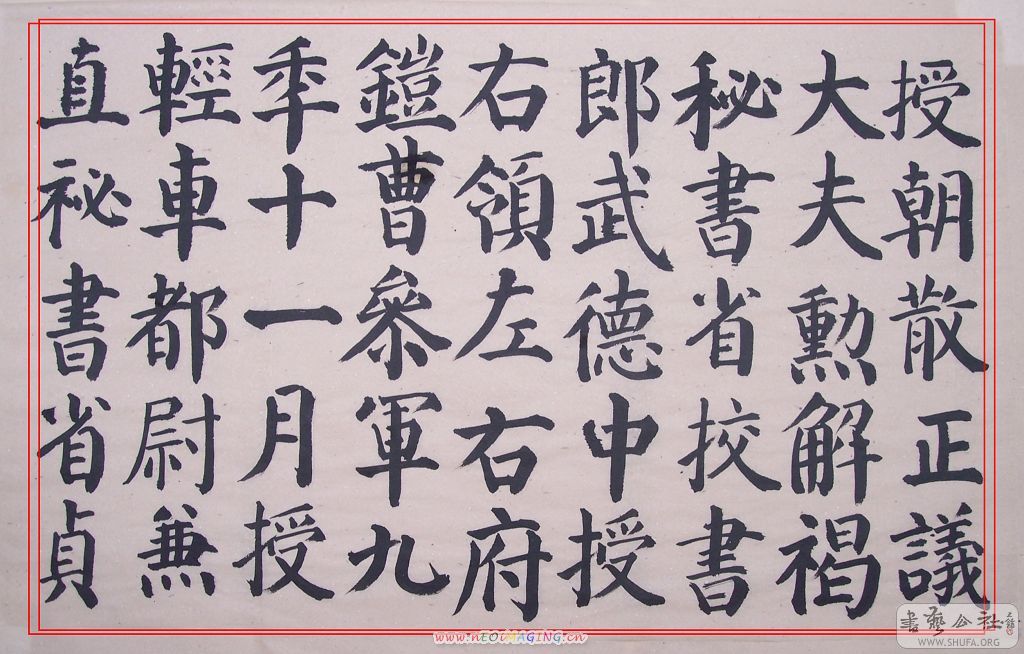 授朝散正議
大夫勲解褐
秘書省挍書
郎武德中授
右領左右府
鎧曹參軍九
秊十一月授
輕車都尉兼
直祕書省貞
書藝公社
WWW.SHUFA.ORG
www.nEOiMAGING.cn